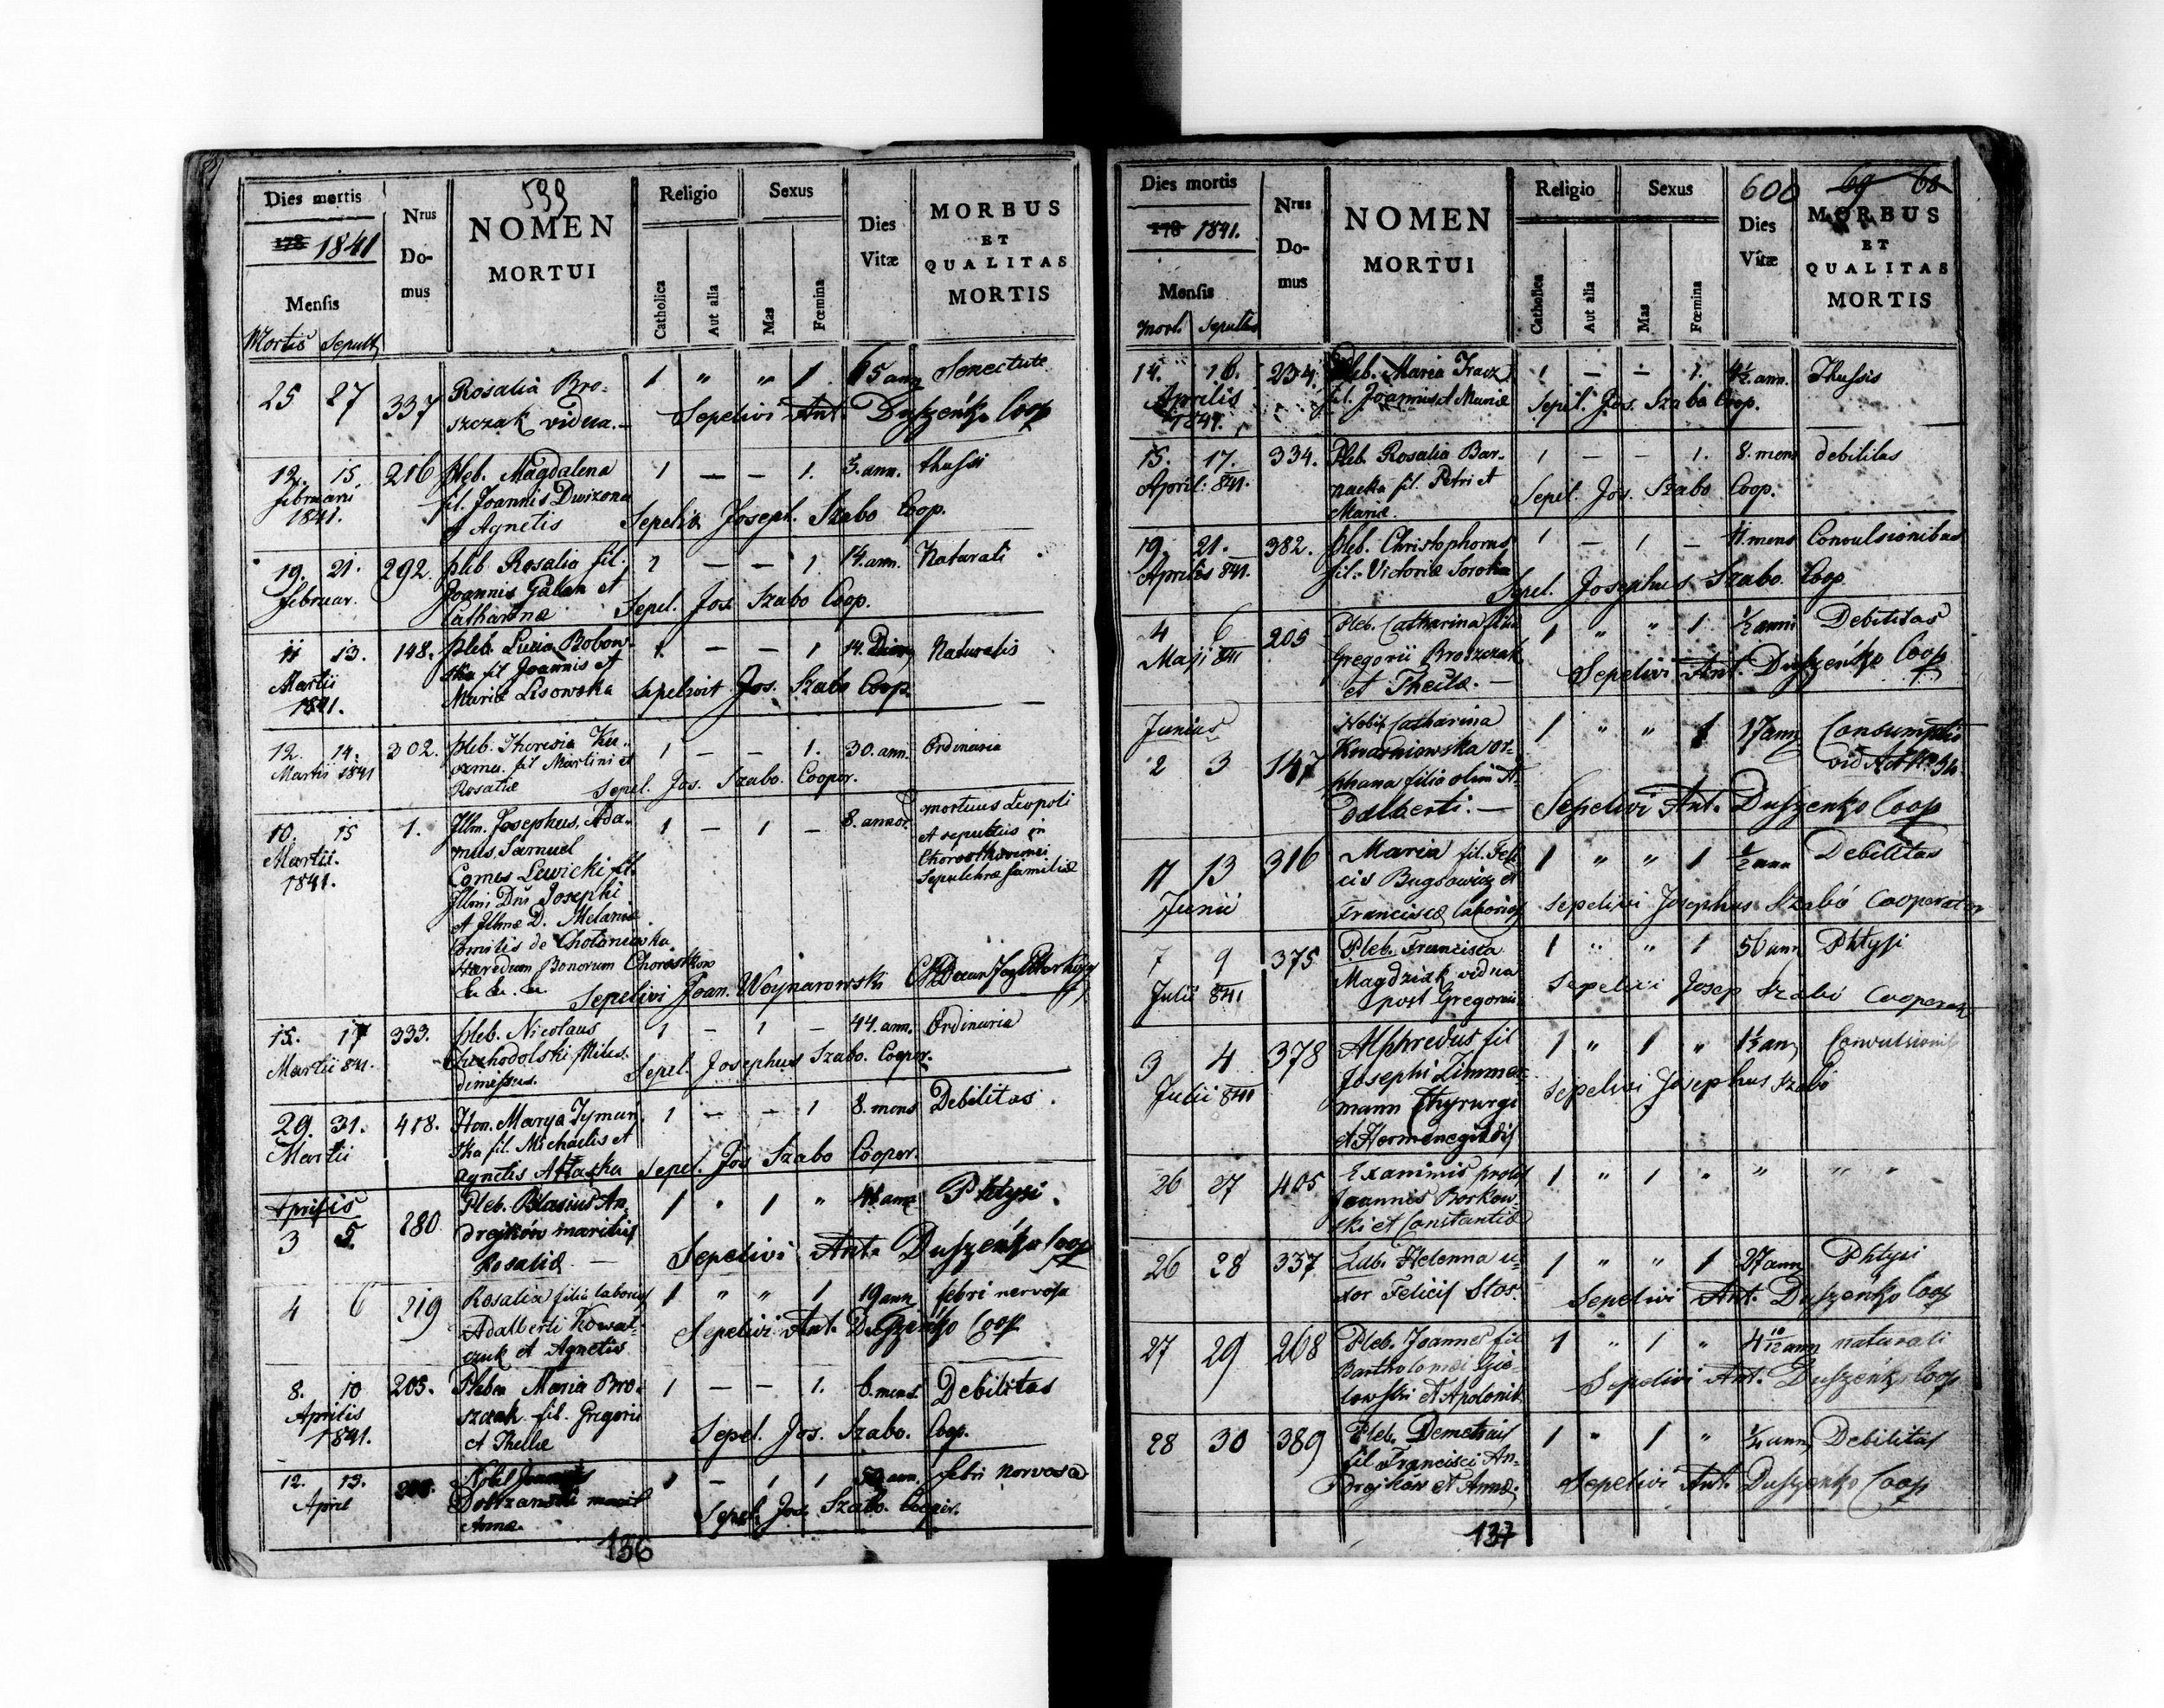 599
Dies mortis
1841
Mensis
Mortis Sepult
Nrus Domus
NOMEN
MORTUI
Religio
Catholica
Aut alia
Sexus
Mas
Fœmina
Dies Vitæ
MORBUS
ET
QUALITAS
MORTIS
25 27 337 Rosalia Bro- 1 " " 1 65 ann Senectute
szczak vidua.- Sepelivi Ant. Duszeńko Coop
12. 15. 216 pleb. Magdalena 1 — — 1. 3. ann. thussi
februarii fil. Joannis Dwizona
1841. et Agnetis Joseph. Szabo Coop.
19. 21. 292. pleb Rosalia fil. 1 — — 1 14. ann. Naturali
februar. Joannis Galan et
Catharinæ Sepel. Jos. Szabo Coop.
11 13. 148. pleb. Lucia Bobow- 1. — — 1 14. Naturalis
Martii ska fil Joannis et
1841. Mariæ Lisowska sepelivit Jos. Szabo Coop.
12. 14. 302. pleb. Theresia 1 — — 1. 30. ann. Ordinaria
Martii 1841 fil Martini et
Rosaliæ Sepel. Jos. Szabo. Cooper.
10. 15 1. Illm. Josephus, Ada- 1 — 1 — 8. annor. mortuus Leopoli
Martii. mus, Samuel et sepultus in
1841. Comes Lewicki fil.
Illmi Dni Josephi Sepulchro familiæ
et Illmæ D. Melaniæ
Comitis de
Hæredum Bonorum
Sepelivi Joan. Woynarowski
15. 17 333. pleb. Nicolaus 1 — 1 — 44. ann. Ordinaria
Martii 841. Suchodolski Miles
demissus. Sepel. Josephus Szabo. Cooper.
29. 31. 418. Hon. Marya Tyman- 1 — — 1 8. mens Debilitas.
Martii ska fil. Michaelis et
Agnetis Sepel. Jos Szabo Cooper.
Aprilis
3 5. 280 Pleb. Blasius An- 1 " 1 " ann Phtysi.
drejków maritus
Rosaliæ — Sepelivi Ant. Duszeńko Coop
4 6 219 Rosalia filia laborios 1 " " 1 19 ann febri nervosa
Adalberti Kowal-
czuk et Agnetis Sepelivi Ant. Duszeńko Coop
8. 10 205. Plebea Maria Bro- 1 — — 1. 6. mens. Debilitas
Aprilis szczak fil. Gregorii
1841. et Sepel. Jos. Szabo. Coop.
12. 13. Nobil 1 — 1 1 ann. febri nervosa
April Dobrzanski
Annæ. Sepel. Jos. Szabo. Cooper.
136
600
69 68
Dies mortis
1841.
Mensis
Mort. Sepultus
Nrus Domus
NOMEN
MORTUI
Religio
Catholica
Aut alia
Sexus
Mas
Fœmina
Dies Vitæ
MORBUS
ET
QUALITAS
MORTIS
14. 16. 234. Pleb. Maria Tracz 1 — — 1. 4½ ann. Thussis
Aprilis fil. Joannis et Mariæ Sepil. Jos. Szabo Coop.
1841.
15. 17. 334. Pleb. Rosalia Bar- 1 — — 1. 8. mens debilitas
April. 841. nacka fil. Petri et Sepel. Jos. Szabo Coop.
Mariæ.
19. 21. 382. pleb. Christophorus 1 — 1 — 11. mens Convulsionibus
Aprilis 841. fil. Victoriæ Soroka
Sepel. Josephus Szabo Coop.
4 6 205 Pleb. Catharina filia 1 " " 1 ½ anni Debilitas
Maji 841 Gregorii Broszczak
et Theclæ. — Sepelivi Ant. Duszeńko Coop
Junius
2 3 147 Nobil Catharina 1 " " 1 17 ann Consumptio
Kwarniowska or-
phana filia olim A-
dalberti. — Sepelivi Ant. Duszenko Coop
11 13 316 Maria fil. Feli- 1 " " 1 ½ ann Debilitas
Junii cis et
Franciscæ laborios sepelivi Josephus Szabó Cooperator
7 9 375 Pleb. Francisca 1 " " 1 56 ann Phtysi
Julii 841 Magdziak vidua
post Gregorii Sepelivi Josep Szabó
3 4 378 Alphredus fil 1 " 1 " 1½ ann Convulsionis
Julii 841 Josephi Zimmer-
mann Chyrurgi sepelivi Josephus Szabó
et Hermenegildis
26 27 405 Exanimis proles 1 " 1 " " " "
Joannis Borkow-
ski et Constantiæ
26 28 337 Helenna u- 1 " " 1 27 ann Phtysi
xor Felicis Stos. Sepelivi Ant. Duszeńko Coop
27 29 268 Pleb. Joannes fil 1 " 1 " 4 10/12 ann naturali
Bartholomæi Gie-
lowski et Apoloniæ Sepelivi Ant. Duszeńko Coop
28 30 389 Pleb. Demetrius 1 " 1 " ¼ ann Debilitas
fil Francisci An-
drejków et Annæ. Sepelivi Ant. Duszenko Coop
137